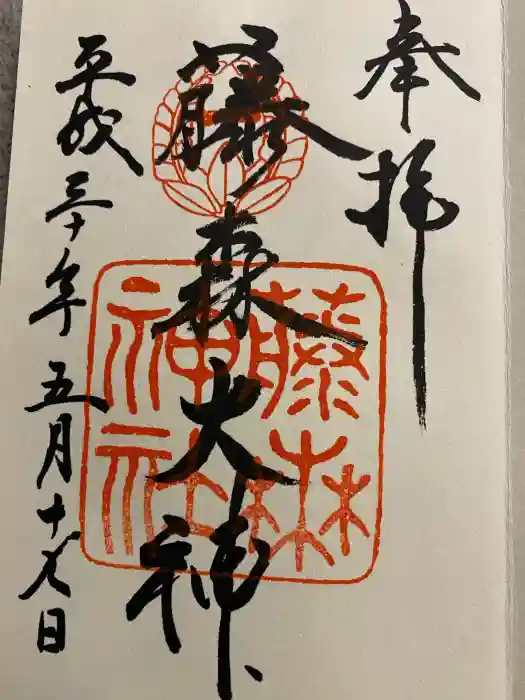 奉拝
藤森大神
藤森神社
平成三十年五月十八日